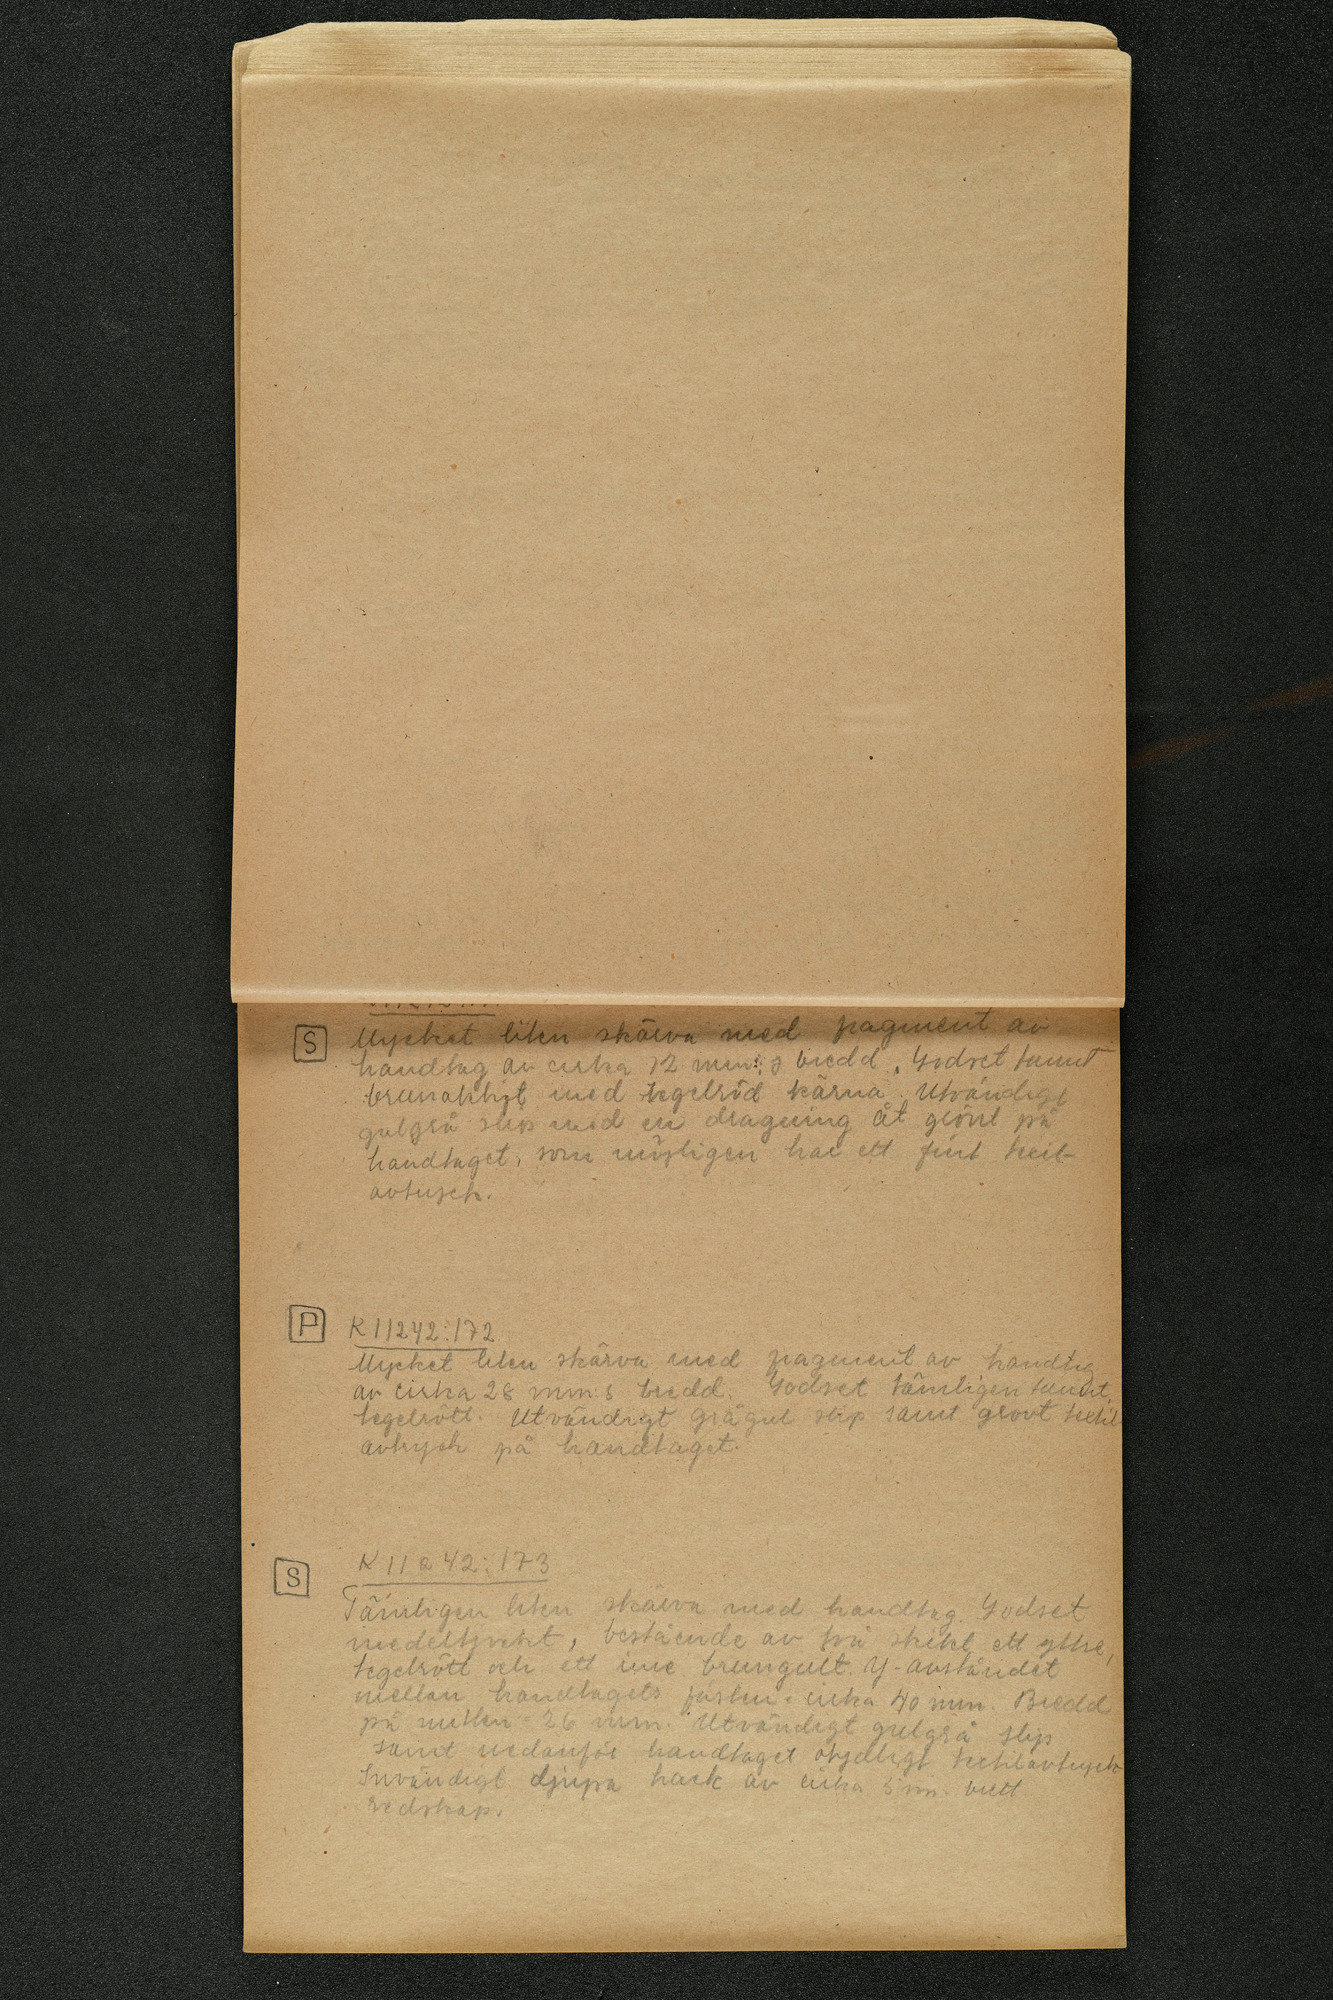 S
Mycket liten skärva med fragment av
handtag av cirka 12 mm:s bredd. Godset tunnt
brunaktigt med tegelröd kärna. Utvändigt
gulgrå slip med en dragning åt grönt på
handtaget, som möjligen har ett fint textil-
avtryck.
P K11242:172
Mycket liten skärva med fragment av handtag
av cirka 28 mm:s bredd. Godset tämligen tunnt,
tegelrött. Utvändigt grågul slip samt grovt textil
avtryck på handtaget.
S K11242:173
Tämligen liten skärva med handtag. Godset
medeltjockt, bestående av två skikt ett yttre,
tegelrött och ett inre brungult. Y-avståndet
mellan handtagets fästen = cirka 40 mm. Bredd
på mitten = 26 mm. Utvändigt gulgrå slip
samt nedanför handtaget otydligt textilavtryck
Invändigt djupa hack av cirka 5 mm. brett
redskap.